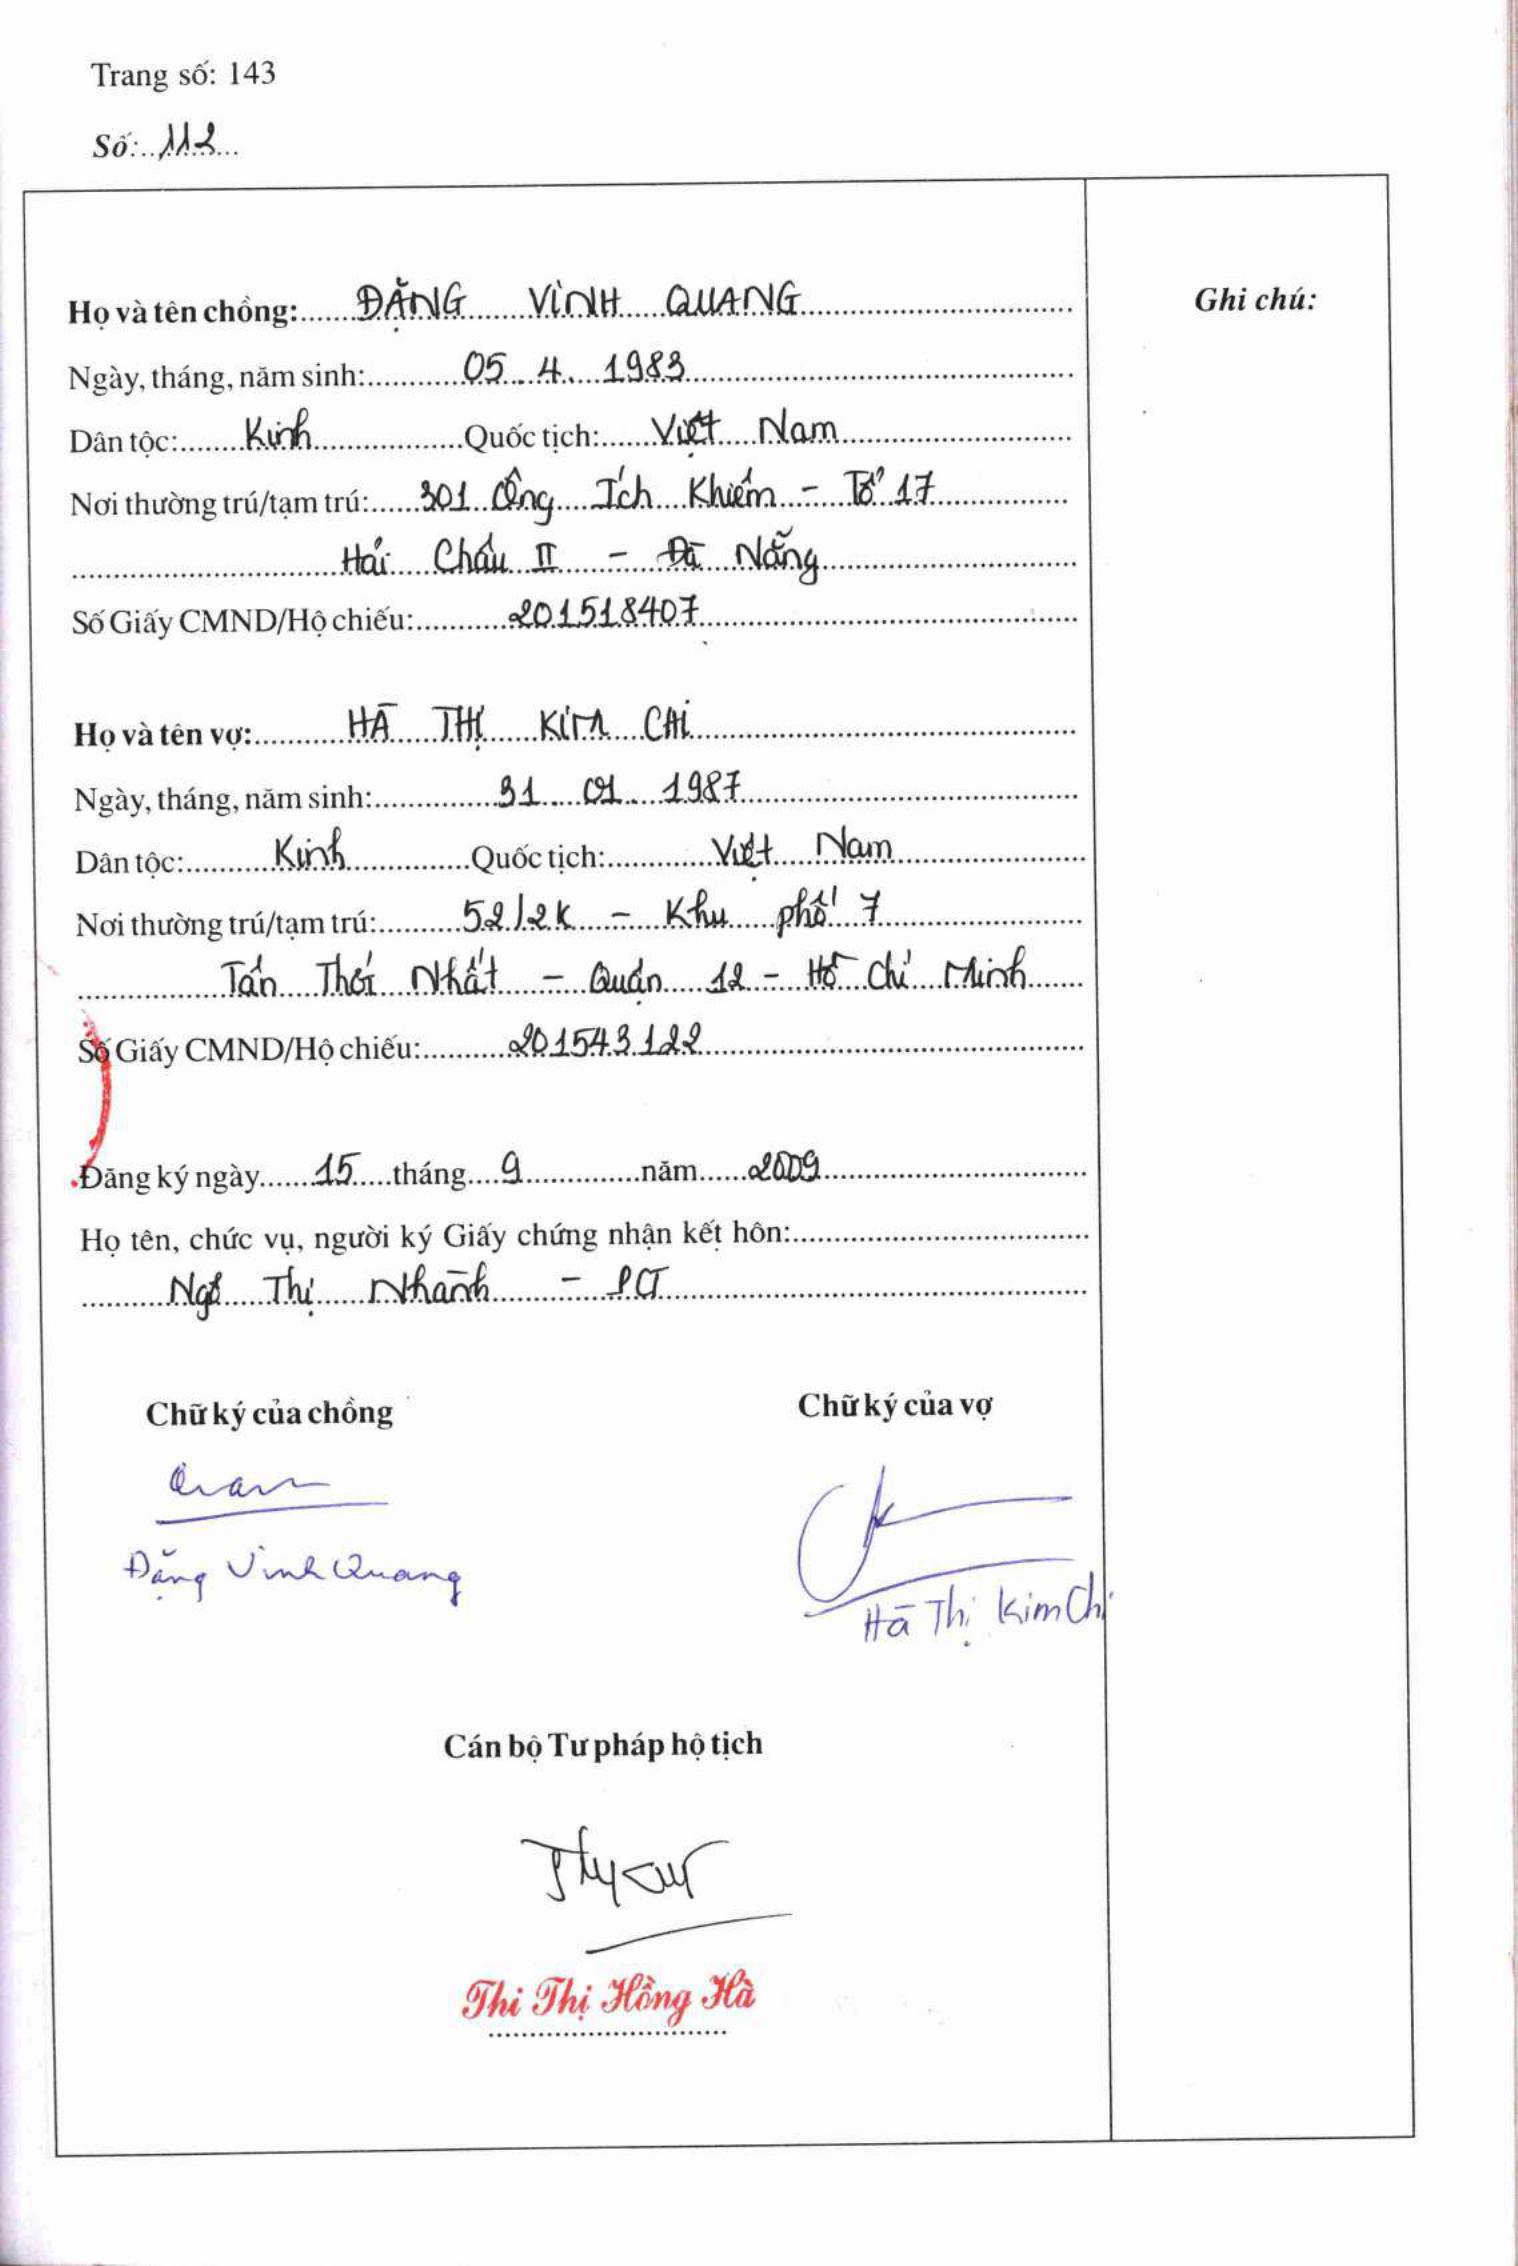 Trang số: 143
Số: 112
Ghi chú:
Họ và tên chồng: ĐẶNG VINH QUANG
Ngày, tháng, năm sinh: 05 4 1983
Dân tộc: Kinh Quốc tịch: Việt Nam
Nơi thường trú/tạm trú: 301 Ông Ích Khiêm - Tổ 17
Hải Châu II - Đà Nẵng
Số Giấy CMND/Hộ chiếu: 201518407
Họ và tên vợ: HÀ THỊ KIM CHI
Ngày, tháng, năm sinh: 31 01 1987
Dân tộc: Kinh Quốc tịch: Việt Nam
Nơi thường trú/tạm trú: 52/2K - Khu phố 7
Tân Thới Nhất - Quận 12 - Hồ Chí Minh
Số Giấy CMND/Hộ chiếu: 201543122
Đăng ký ngày 15 tháng 9 năm 2009
Họ tên, chức vụ, người ký Giấy chứng nhận kết hôn:
Ngô Thị Nhành - PCT
Chữ ký của chồng Chữ ký của vợ
Đặng Vinh Quang
Hà Thị Kim Chi
Cán bộ Tư pháp hộ tịch
Thi Thị Hồng Hà